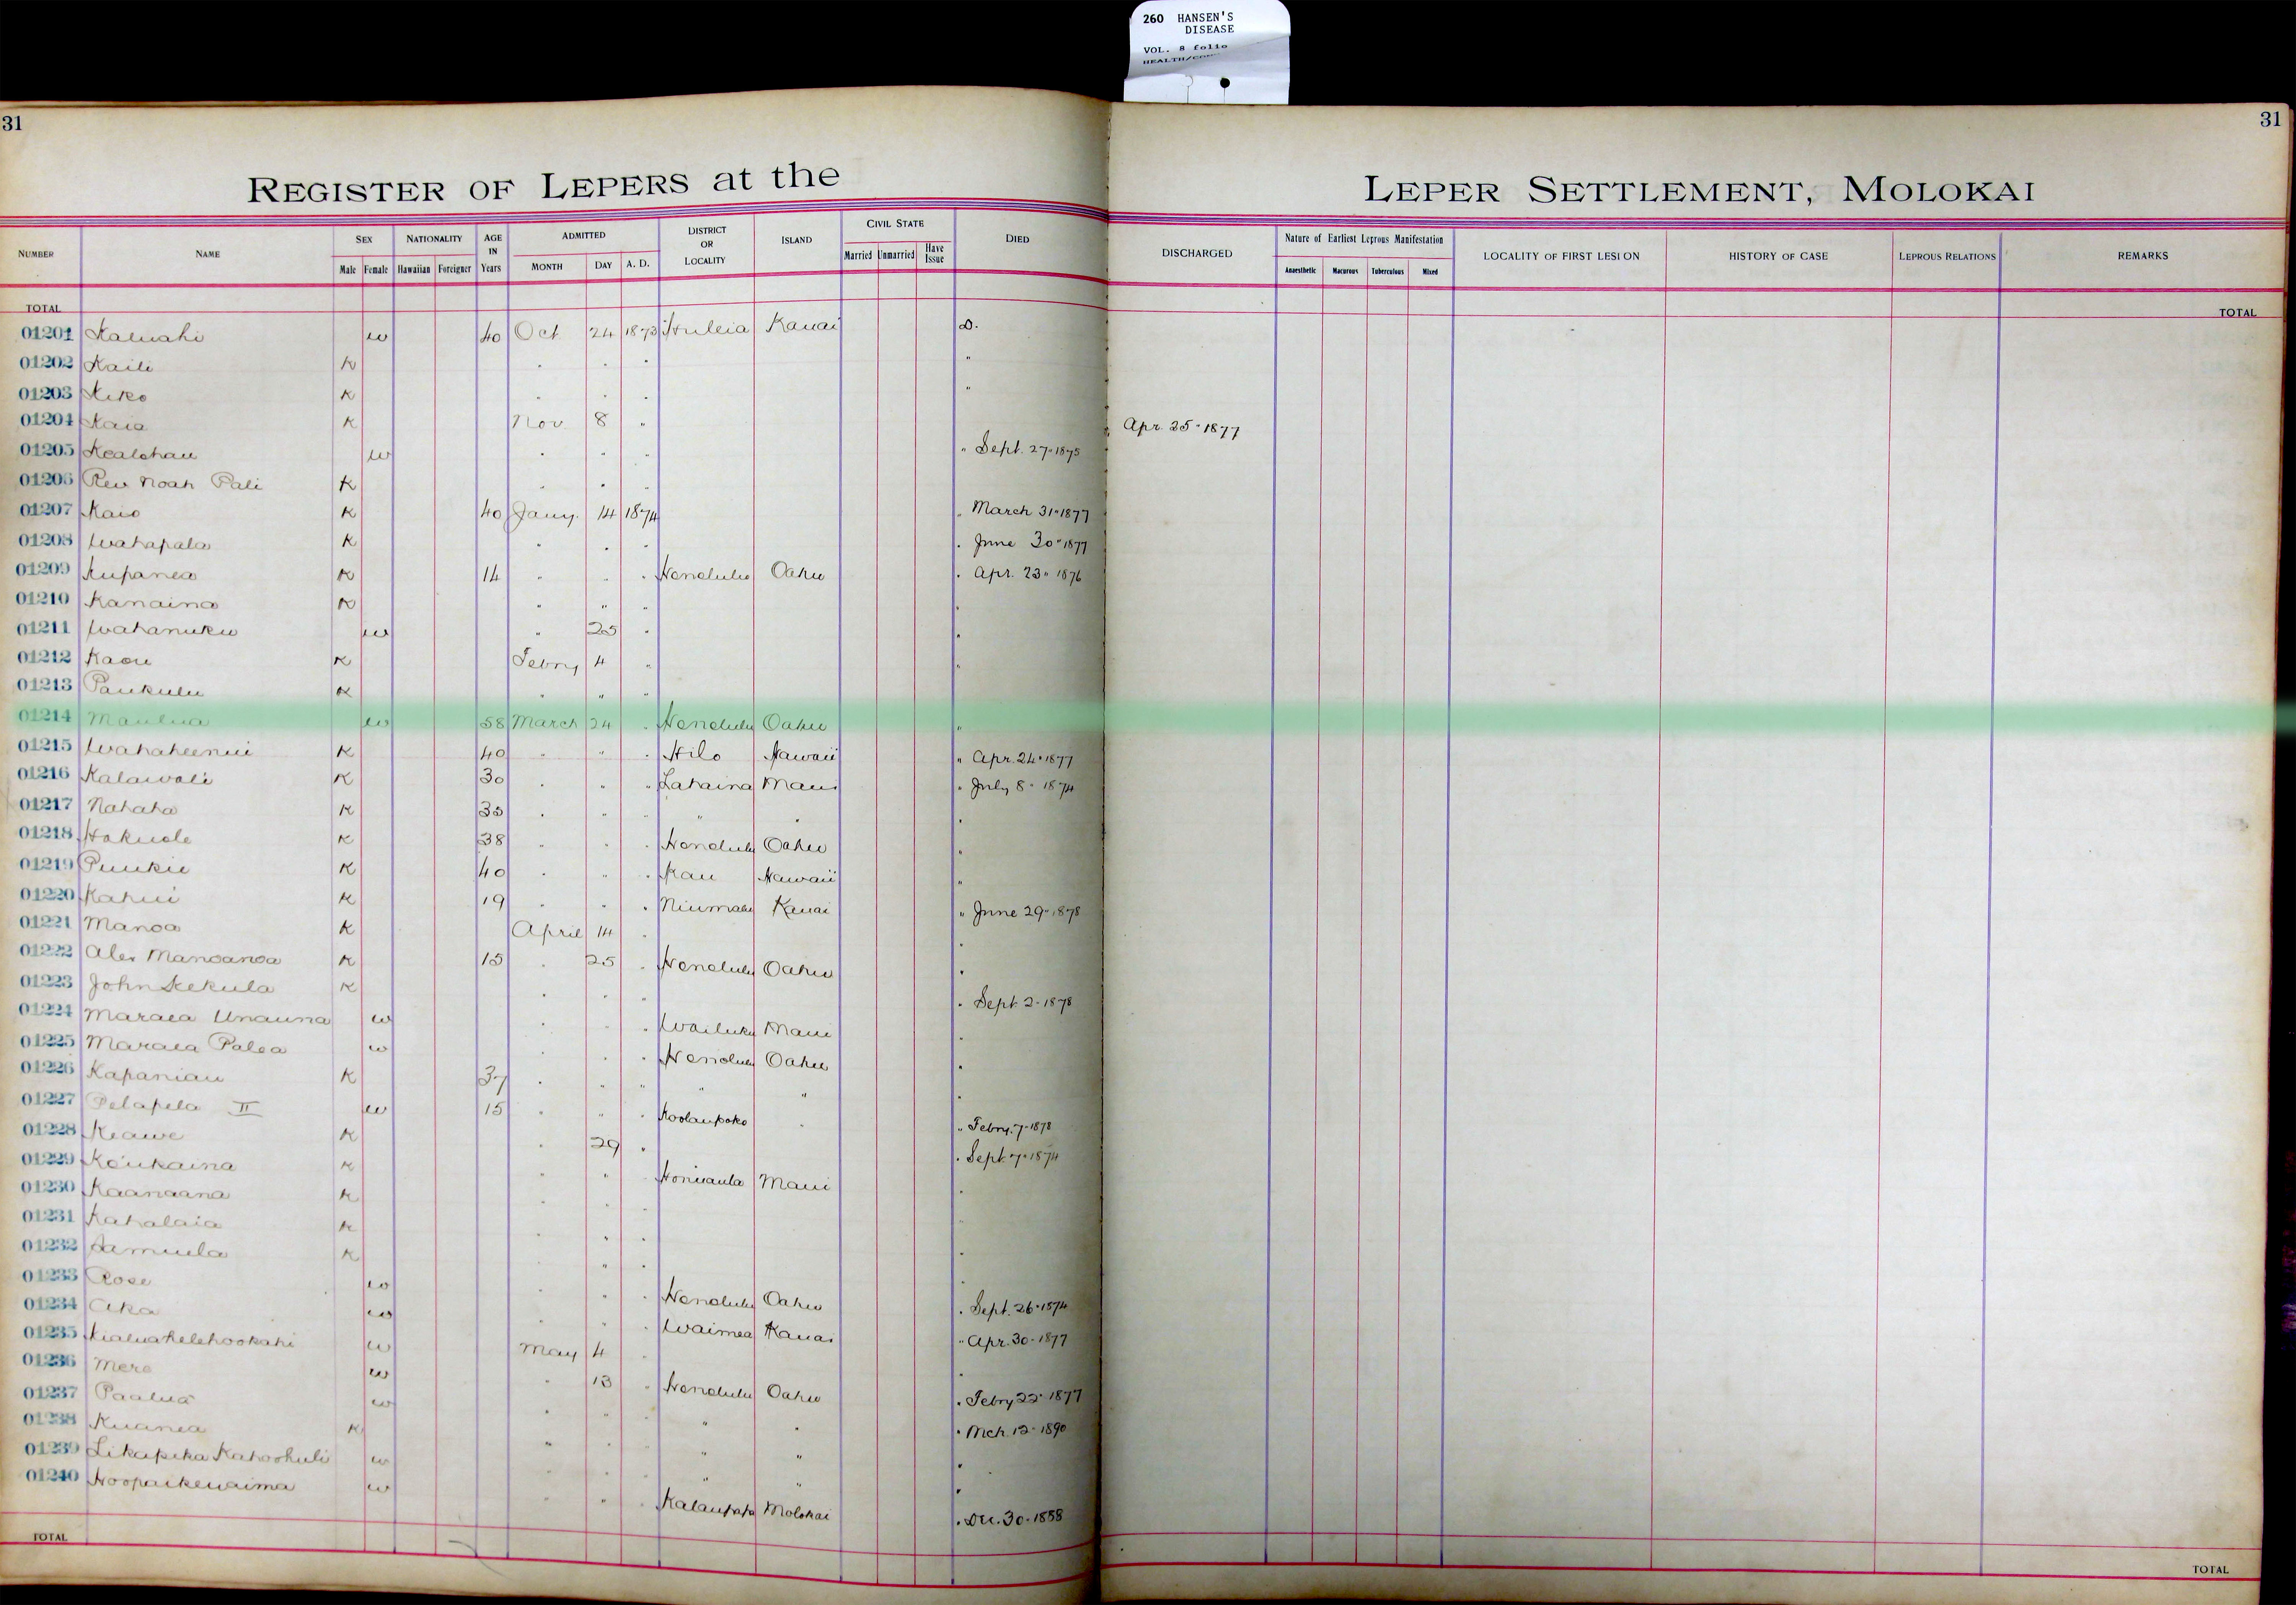 260 HANSEN'S
DISEASE
VOL. 8 folio
31
31
REGISTER OF LEPERS at the
LEPER SETTLEMENT, MOLOKAI
NUMBER NAME SEX Male Female NATIONALITY Hawaiian Foreigner AGE IN Years ADMITTED MONTH DAY A. D. DISTRICT OR LOCALITY ISLAND CIVIL STATE Married Unmarried Have Issue DIED
DISCHARGED Nature of Earliest Leprous Manifestation Anaesthetic Macurous Tuberculous Mixed LOCALITY OF FIRST LESION HISTORY OF CASE LEPROUS RELATIONS REMARKS
TOTAL TOTAL
01201 Kaluahi w 40 Oct 24 1873 Huleia Kauai D.
01202 Kaili K " " " "
01203 Kiko K " " " "
01204 Kaia K Nov. 8 " " Apr. 25" 1877
01205 Kealohau w " " " " Sept. 27" 1875
01206 Rev Noah Pali K " " "
01207 Kaio K 40 Jany. 14 1874 " March 31" 1877
01208 Wahapala K " " " " June 30" 1877
01209 Kupanea K 14 " " " Honolulu Oahu " Apr. 23" 1876
01210 Kanaina K " " " "
01211 Wahanuku w " 25 " "
01212 Kaou K Febry 4 " "
01213 Paukulu K " " "
01214 Maulua w 58 March 24 " Honolulu Oahu "
01215 Wahaheenui K 40 " " " Hilo Hawaii " Apr. 24" 1877
01216 Kalawali K 30 " " " Lahaina Maui " July 8" 1874
01217 Nahaha K 35 " " " " " "
01218 Hakuole K 38 " " " Honolulu Oahu "
01219 Puukii K 40 " " " Kau Hawaii "
01220 Kahui K 19 " " " Niumalu Kauai " June 29" 1878
01221 Manoa K April 14 " "
01222 Alex Manoanoa K 15 " 25 " Honolulu Oahu "
01223 John Kekula K " " " " Sept. 2" 1878
01224 Maraea Unauna w " " " Wailuku Maui "
01225 Maraea Palea w " " " Honolulu Oahu "
01226 Kapaniau K 37 " " " " " "
01227 Pelapela II w 15 " " " Koolaupoko " " Febry. 7" 1878
01228 Keawe K " 29 " " Sept. 7" 1874
01229 Koukaina K " " " Honuaula Maui "
01230 Kaanaana K " " " "
01231 Kahalaia K " "
01232 Samuela K " " "
01233 Rose w " " " Honolulu Oahu " Sept. 26" 1874
01234 Aka w " " " Waimea Kauai " Apr. 30" 1877
01235 Kialuahelehookahi w May 4 " "
01236 Mere w " 13 " Honolulu Oahu " Febry 22" 1877
01237 Paalua w " " " " " " Mch. 12" 1890
01238 Kuanea K " " " " " "
01239 Likapeka Kahoohuli w " " " " "
01240 Hoopaikewaima w " " " Kalaupapa Molokai " Dec. 30" 1888
TOTAL TOTAL